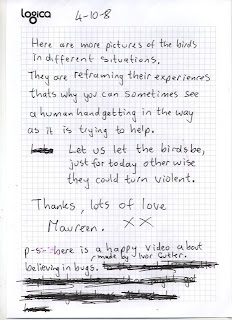 logica
4-10-8
Here are more pictures of the birds
in different situations.
They are reframing their experiences
thats why you can sometimes see
a human hand getting in the way
as it is trying to help.
Let us let the birds be,
just for today other wise
they could turn violent.
Thanks, lots of love
Maureen. XX
p-s- here is a happy video about
made by Ivor Cutler.
believing in bugs.